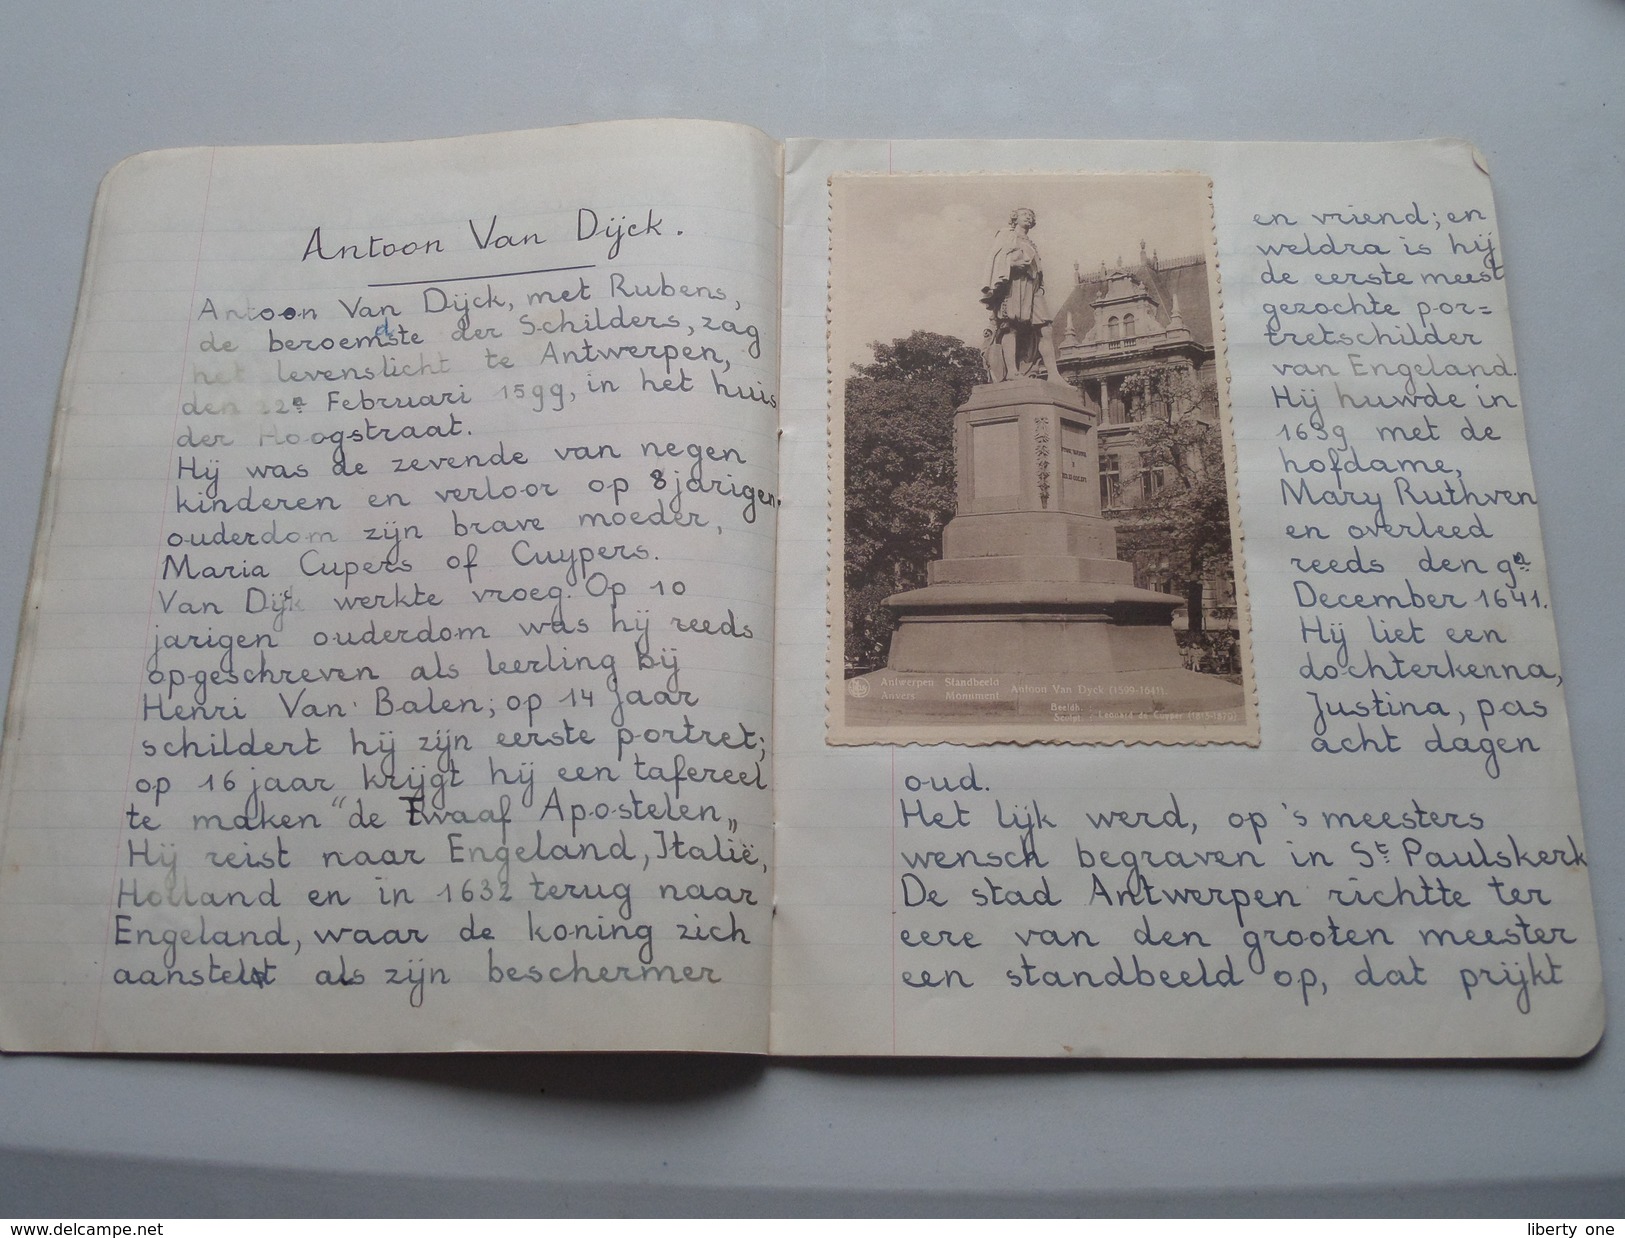 Antoon Van Dijck.
Antoon Van Dijck, met Rubens,
de beroemdste der Schilders, zag
het levenslicht te Antwerpen,
den 22e Februari 1599, in het huis
der Hoogstraat.
Hij was de zevende van negen
kinderen en verloor op 8 jarigen
ouderdom zijn brave moeder,
Maria Cupers of Cuypers.
Van Dijk werkte vroeg. Op 10
jarigen ouderdom was hij reeds
opgeschreven als leerling bij
Henri Van Balen; op 14 jaar
schildert hij zijn eerste portret;
op 16 jaar krijgt hij een tafereel
te maken "de Twaaf Apostelen„
Hij reist naar Engeland, Italië,
Holland en in 1632 terug naar
Engeland, waar de koning zich
aanstelt als zijn beschermer
en vriend; en
weldra is hij
de eerste meest
gezochte por=
tretschilder
van Engeland.
Hij huwde in
1639 met de
hofdame,
Mary Ruthven
en overleed
reeds den 9n
December 1641.
Hij liet een
dochterkenna,
Justina, pas
acht dagen
oud.
Het lijk werd, op 's meesters
wensch begraven in St Paulskerk
De stad Antwerpen richtte ter
eere van den grooten meester
een standbeeld op, dat prijkt
Antwerpen Standbeeld
Anvers Monument Antoon Van Dyck (1599-1641).
Beeldh.
Sculpt. : Leonard de Cuyper (1813-1870)
www.delcampe.net
liberty one